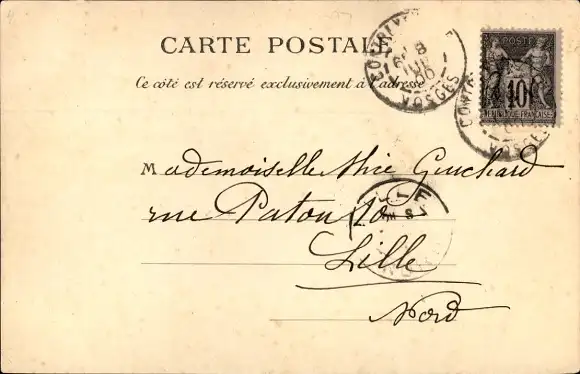 CARTE POSTALE
Ce côté est réservé exclusivement à l'adresse
POSTE
10
RÉPUBLIQUE FRANÇAISE
VOSGES
VOSGES
Mademoiselle Alice Guichard
rue Patou 10
Lille
Nord
LILLE